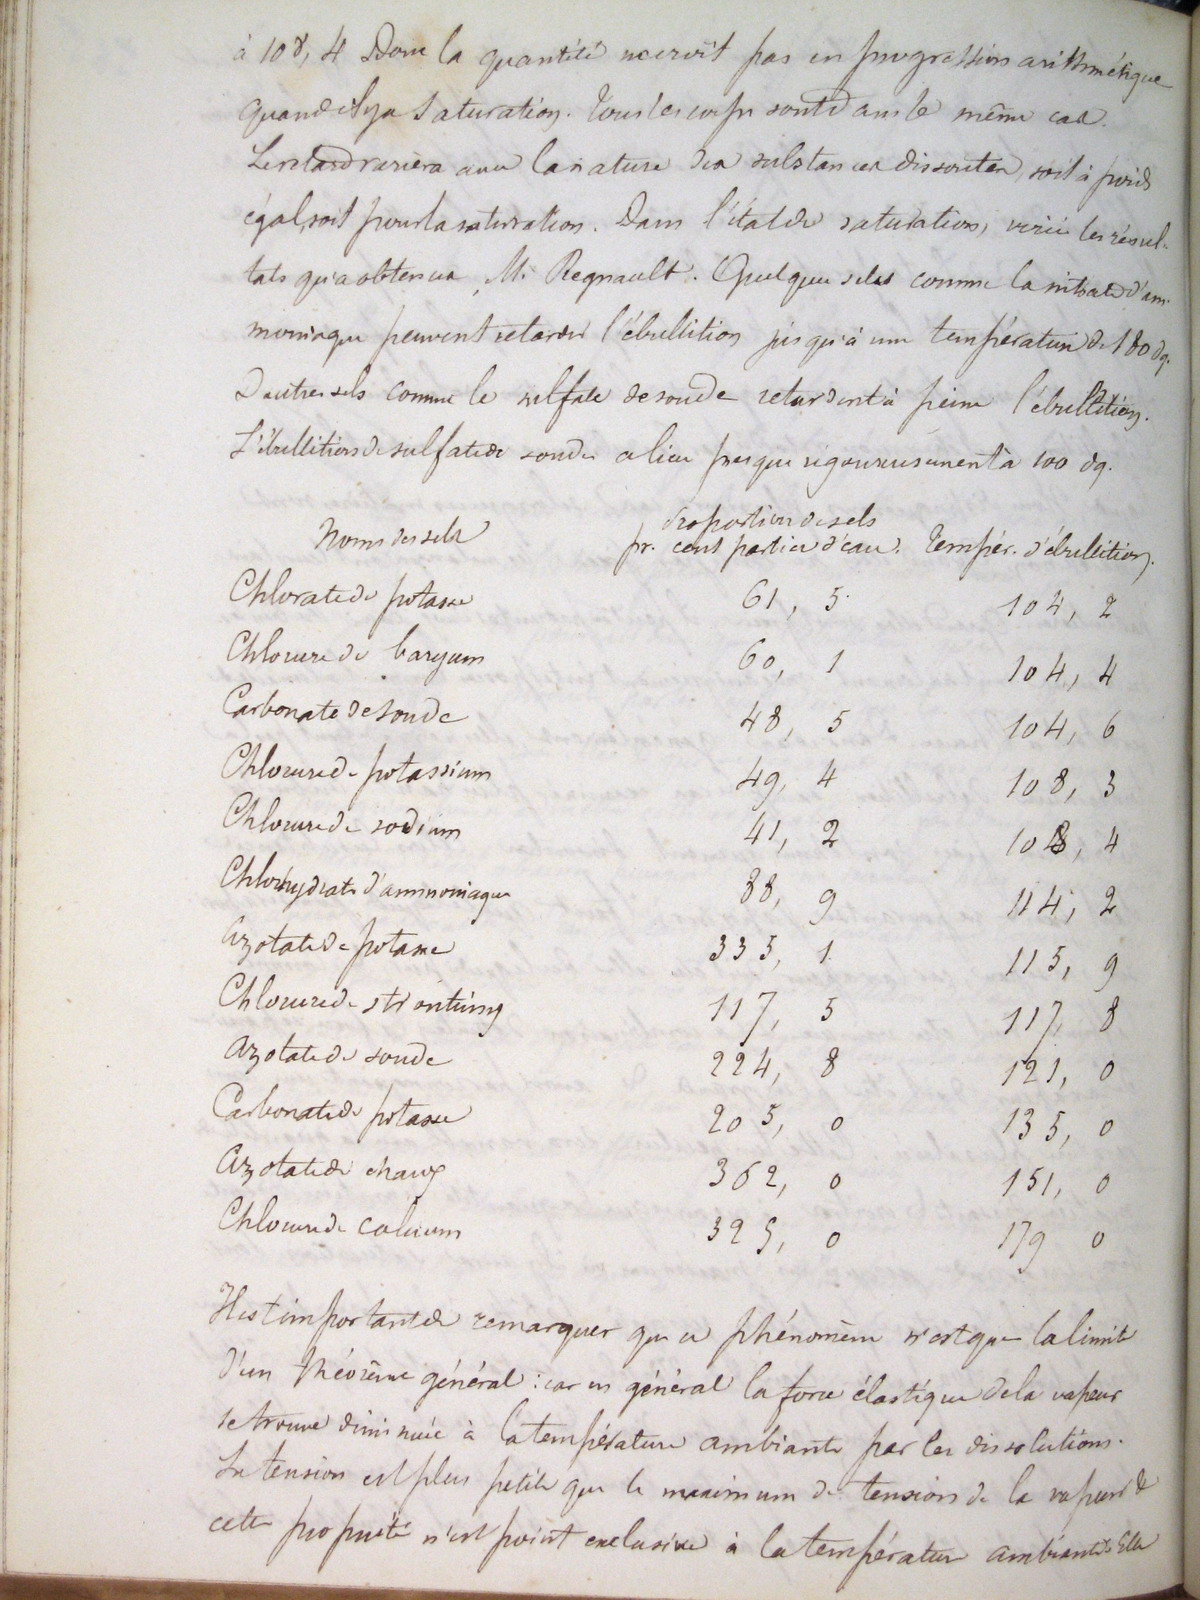 à 108, 4 Donc la quantité ne croît pas en progression arithmétique
quand il y a saturation. Tous les corps sont dans le même cas.
Le retard variera avec la nature des substances dissoutes, soit à poids
égal, soit pour la saturation. Dans l'état de saturation, voici les résul-
tats qu'a obtenus M. Regnault. Quelques sels comme le nitrate d'am-
moniaque peuvent retarder l'ébullition jusqu'à une température de 180 dg.
D'autres sels comme le sulfate de soude retardent à peine l'ébullition.
L'ébullition de sulfate de soude a lieu presque rigoureusement à 100 dg.
Noms des sels proportion de sels
pr. cent parties d'eau. Tempér. d'ébullition.
Chlorate de potasse 61, 5 104, 2
Chlorure de baryum 60, 1 104, 4
Carbonate de soude 48, 5 104, 6
Chlorure de potassium 49, 4 108, 3
Chlorure de sodium 41, 2 108, 4
Chlorhydrate d'ammoniaque 88, 9 114, 2
Azotate de potasse 335, 1 115, 9
Chlorure de strontium 117, 5 117, 8
Azotate de soude 224, 8 121, 0
Carbonate de potasse 205, 0 135, 0
Azotate de chaux 362, 0 151, 0
Chlorure de calcium 325, 0 179 0
Il est important de remarquer que ce phénomène n'est que la limite
d'un théorème général : car en général la force élastique de la vapeur
se trouve diminuée à la température ambiante par les dissolutions.
La tension est plus petite que le maximum de tension de la vapeur &
cette propriété n'est point exclusive à la température ambiante Elle